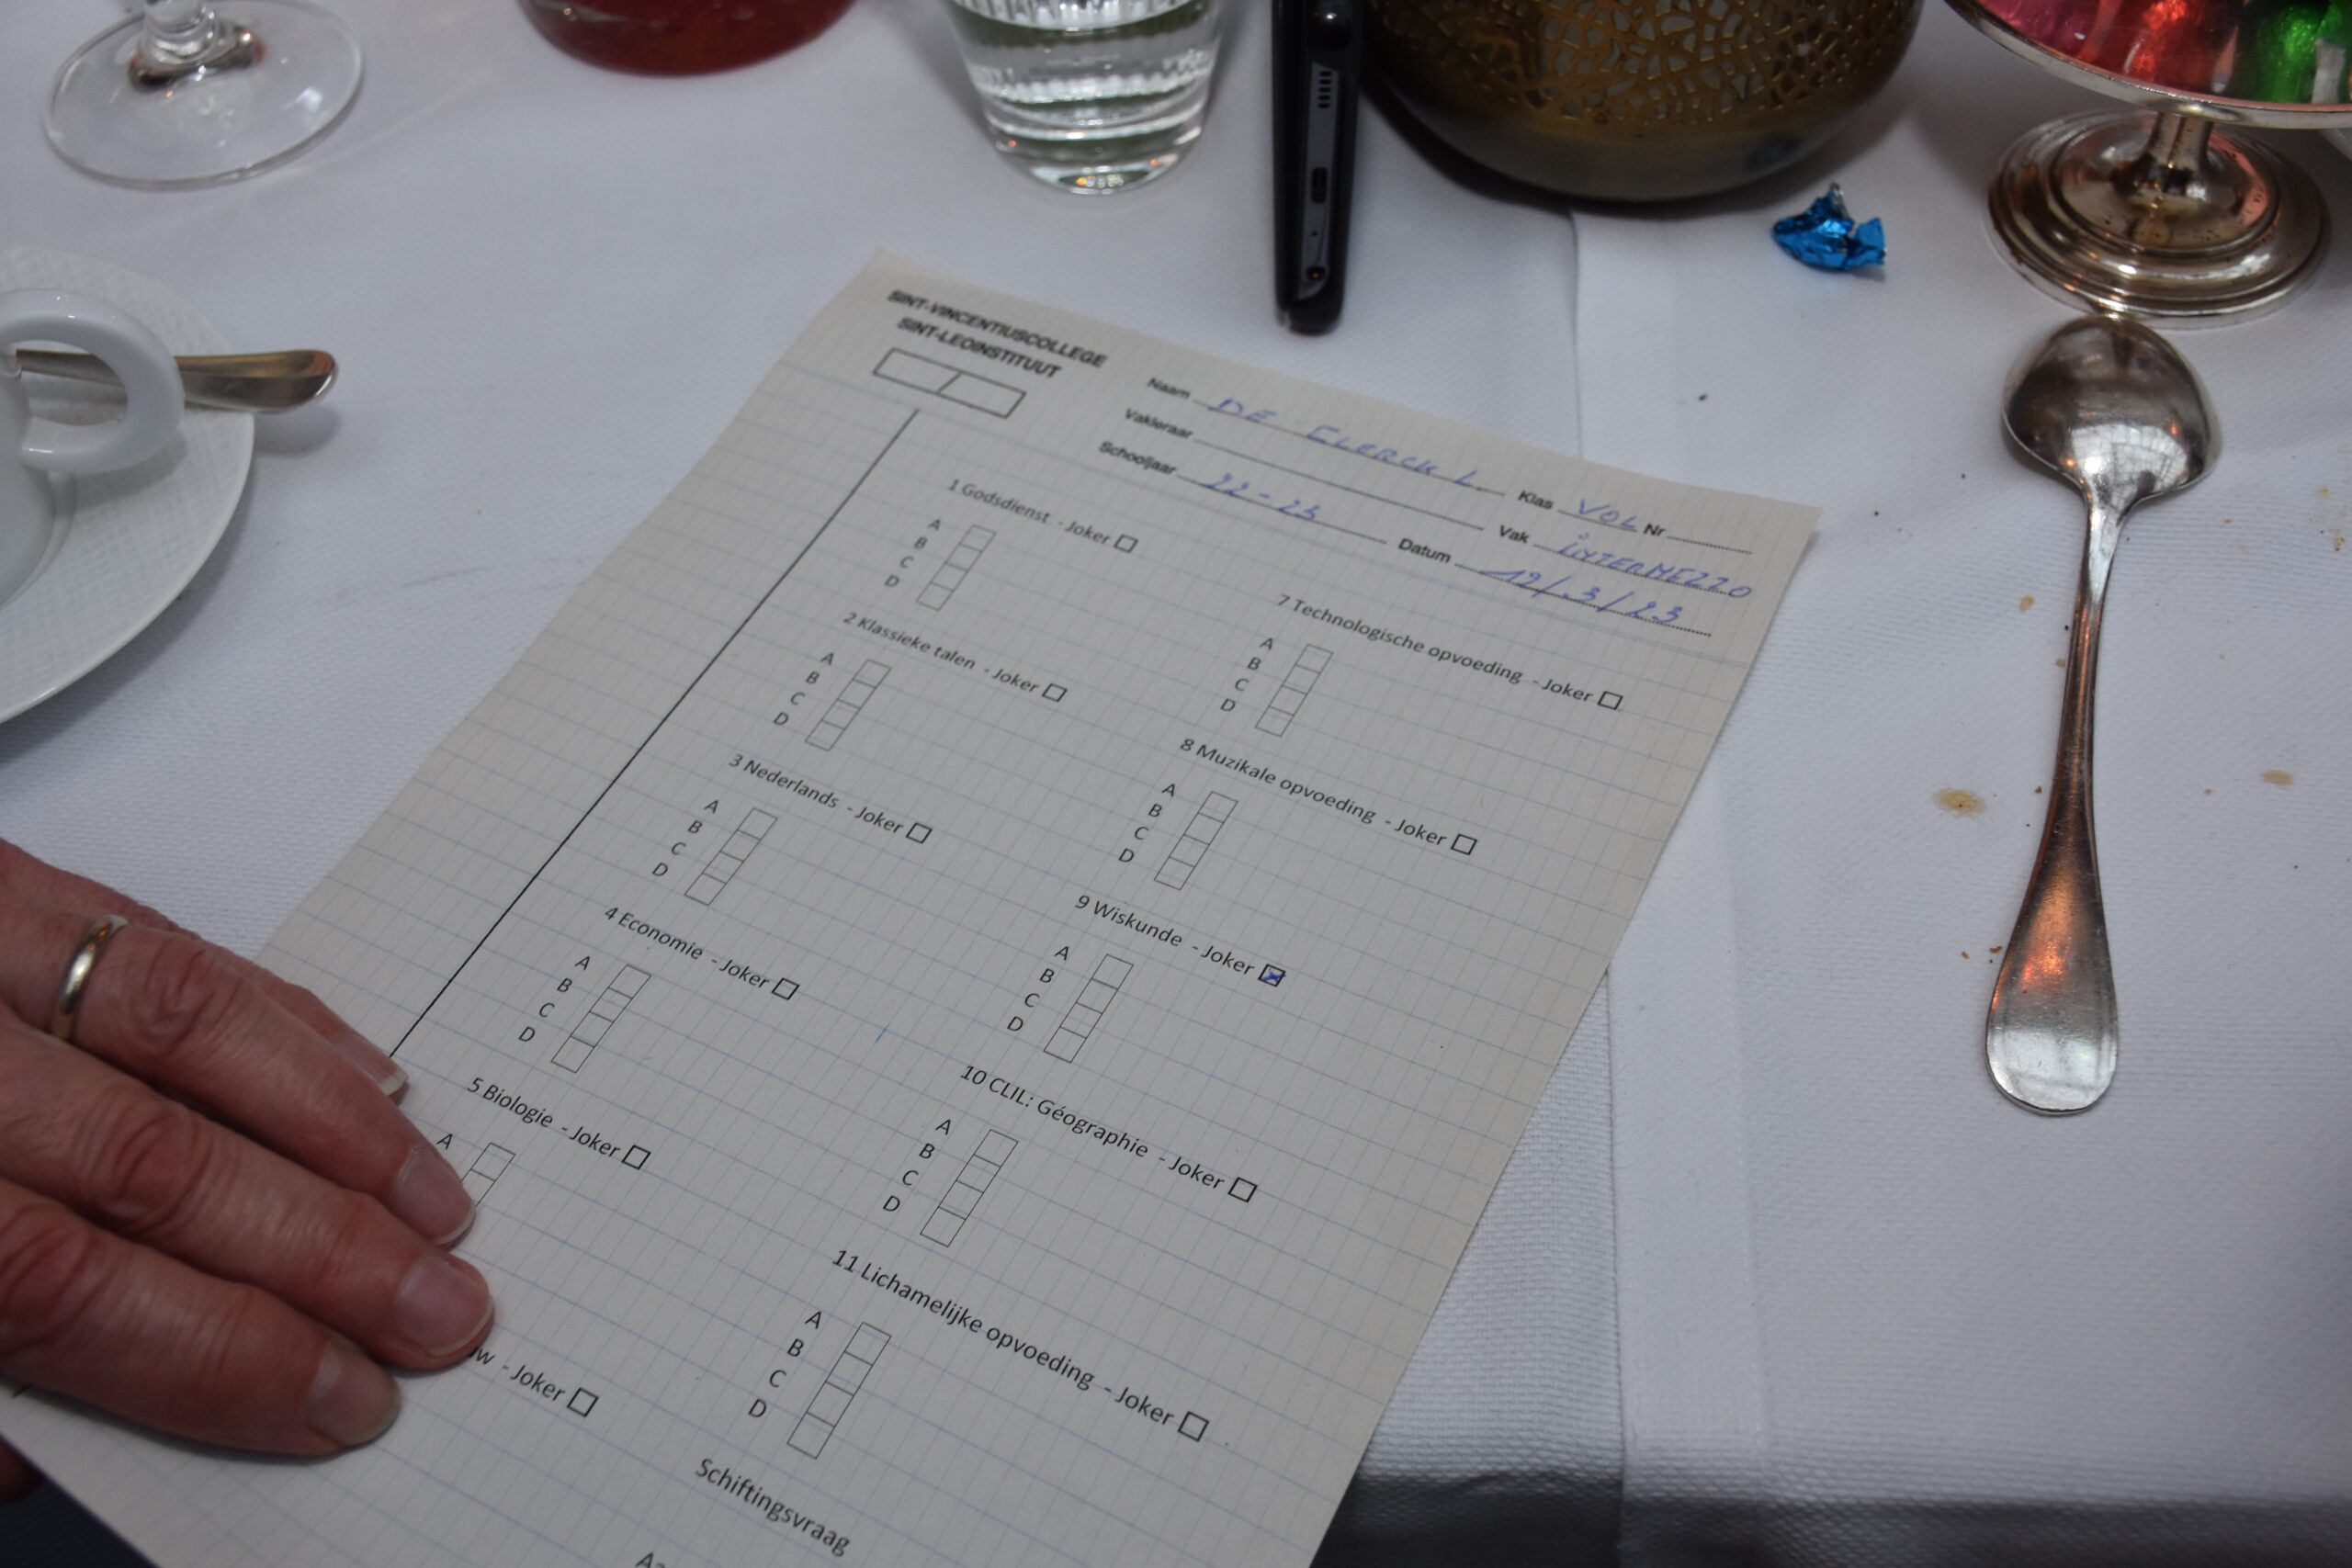 SINT-VINCENTIUSCOLLEGE
SINT-LEOINSTITUUT
Naam DE CLERCK L. Klas VOL Nr
Vakleraar Vak INTERMEZZO
Schooljaar 22-23 Datum 12/3/23
1 Godsdienst - Joker
A
B
C
D
2 Klassieke talen - Joker
A
B
C
D
3 Nederlands - Joker
A
B
C
D
4 Economie - Joker
A
B
C
D
5 Biologie - Joker
A
- Joker
7 Technologische opvoeding - Joker
A
B
C
D
8 Muzikale opvoeding - Joker
A
B
C
D
9 Wiskunde - Joker
A
B
C
D
10 CLIL: Géographie - Joker
A
B
C
D
11 Lichamelijke opvoeding - Joker
A
B
C
D
Schiftingsvraag